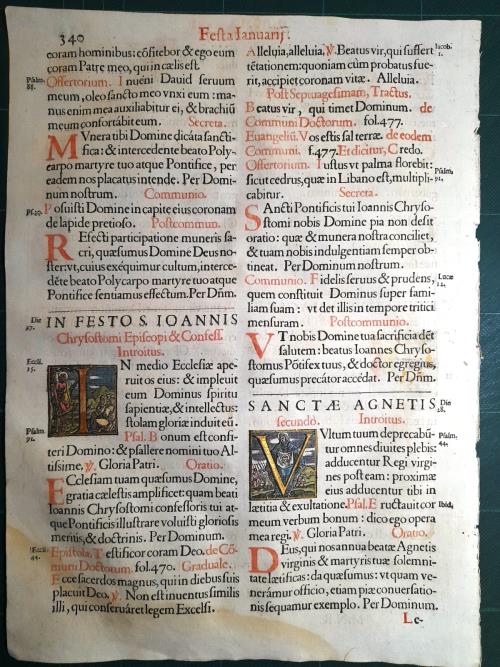 340
Festa Ianuarij.
coram hominibus: cōfitebor & ego eum
coram Patre meo, qui in cælis est.
Psalm. 88.
Offertorium. Inueni Dauid seruum
meum, oleo sancto meo vnxi eum: ma-
nus enim mea auxiliabitur ei, & brachiū
meum confortabit eum. Secreta.
MVnera tibi Domine dicata sancti-
fica: & intercedente beato Poly-
carpo martyre tuo atque Pontifice, per
eadem nos placatus intende. Per Domi-
num nostrum. Communio.
Ps. 20.
Posuisti Domine in capite eius coronam
de lapide pretioso. Postcommun.
REfecti participatione muneris sa-
cri, quæsumus Domine Deus no-
ster: vt, cuius exéquimur cultum, interce-
dēte beato Polycarpo martyre tuo atque
Pontifice sentiamus effectum. Per Dñm.
Die 27.
IN FESTO S. IOANNIS
Chrysostomi Episcopi & Confess.
Introitus.
Eccli. 15.
IN medio Ecclesiæ ape-
ruit os eius: & impleuit
eum Dominus spiritu
sapientiæ, & intellectus:
stolam gloriæ induit eū.
Psalm. 91.
Psal. Bonum est confi-
teri Domino: & psallere nomini tuo Al-
tissime, ℣. Gloria Patri. Oratio.
ECclesiam tuam quæsumus Domine,
gratia cælestis amplificet: quam beati
Ioannis Chrysostomi confessoris tui at-
que Pontificis illustrare voluisti gloriosis
meritis, & doctrinis. Per Dominum.
Eccli. 44.
Epistola. Testificor coram Deo. de Cō-
muni Doctorum. fol. 470. Graduale.
Ecce sacerdos magnus, qui in diebus suis
placuit Deo. ℣. Non est inuentus similis
illi, qui conseruáret legem Excelsi.
Alleluia, alleluia, ℣. Beatus vir, qui suffert
Iacob. 1.
tētationem: quoniam cùm probatus fue-
rit, accipiet coronam vitæ. Alleluia.
Post Septuagesimam, Tractus.
Beatus vir, qui timet Dominum. de
Communi Doctorum. fol. 477.
Euangeliū. Vos estis sal terræ. de eodem
Communi. f. 477. Et dicitur, Credo.
Offertorium. Iustus vt palma florebit:
Psalm. 91.
sicut cedrus, quæ in Libano est, multipli-
cabitur. Secreta.
SAncti Pontificis tui Ioannis Chryso-
stomi nobis Domine pia non desit
oratio: quæ & munera nostra conciliet,
& tuam nobis indulgentiam semper ob-
tineat. Per Dominum nostrum.
Communio. Fidelis seruus & prudens,
Lucæ 12.
quem constituit Dominus super fami-
liam suam: vt det illis in tempore tritici
mensuram. Postcommunio.
VT nobis Domine tua sacrificia dēt
salutem: beatus Ioannes Chryso-
stomus Pōtifex tuus, & doctor egregius,
quæsumus precátor accédat. Per Dñm.
SANCTÆ AGNETIS
Die 28.
secundò. Introitus.
VVltum tuum deprecabū-
Psalm. 44.
tur omnes diuites plebis:
adducentur Regi virgi-
nes post eam: proximæ
eius adducentur tibi in
lætitia & exultatione. Psal. Eructauit cor
Ibid.
meum verbum bonum: dico ego opera
mea regi. ℣. Gloria Patri. Oratio.
DEus, qui nos annua beatæ Agnetis
virginis & martyris tuæ solemni-
tate lætificas: da quæsumus: vt quam ve-
nerámur officio, etiam piæ conuersatio-
nis sequamur exemplo. Per Dominum.
Le-